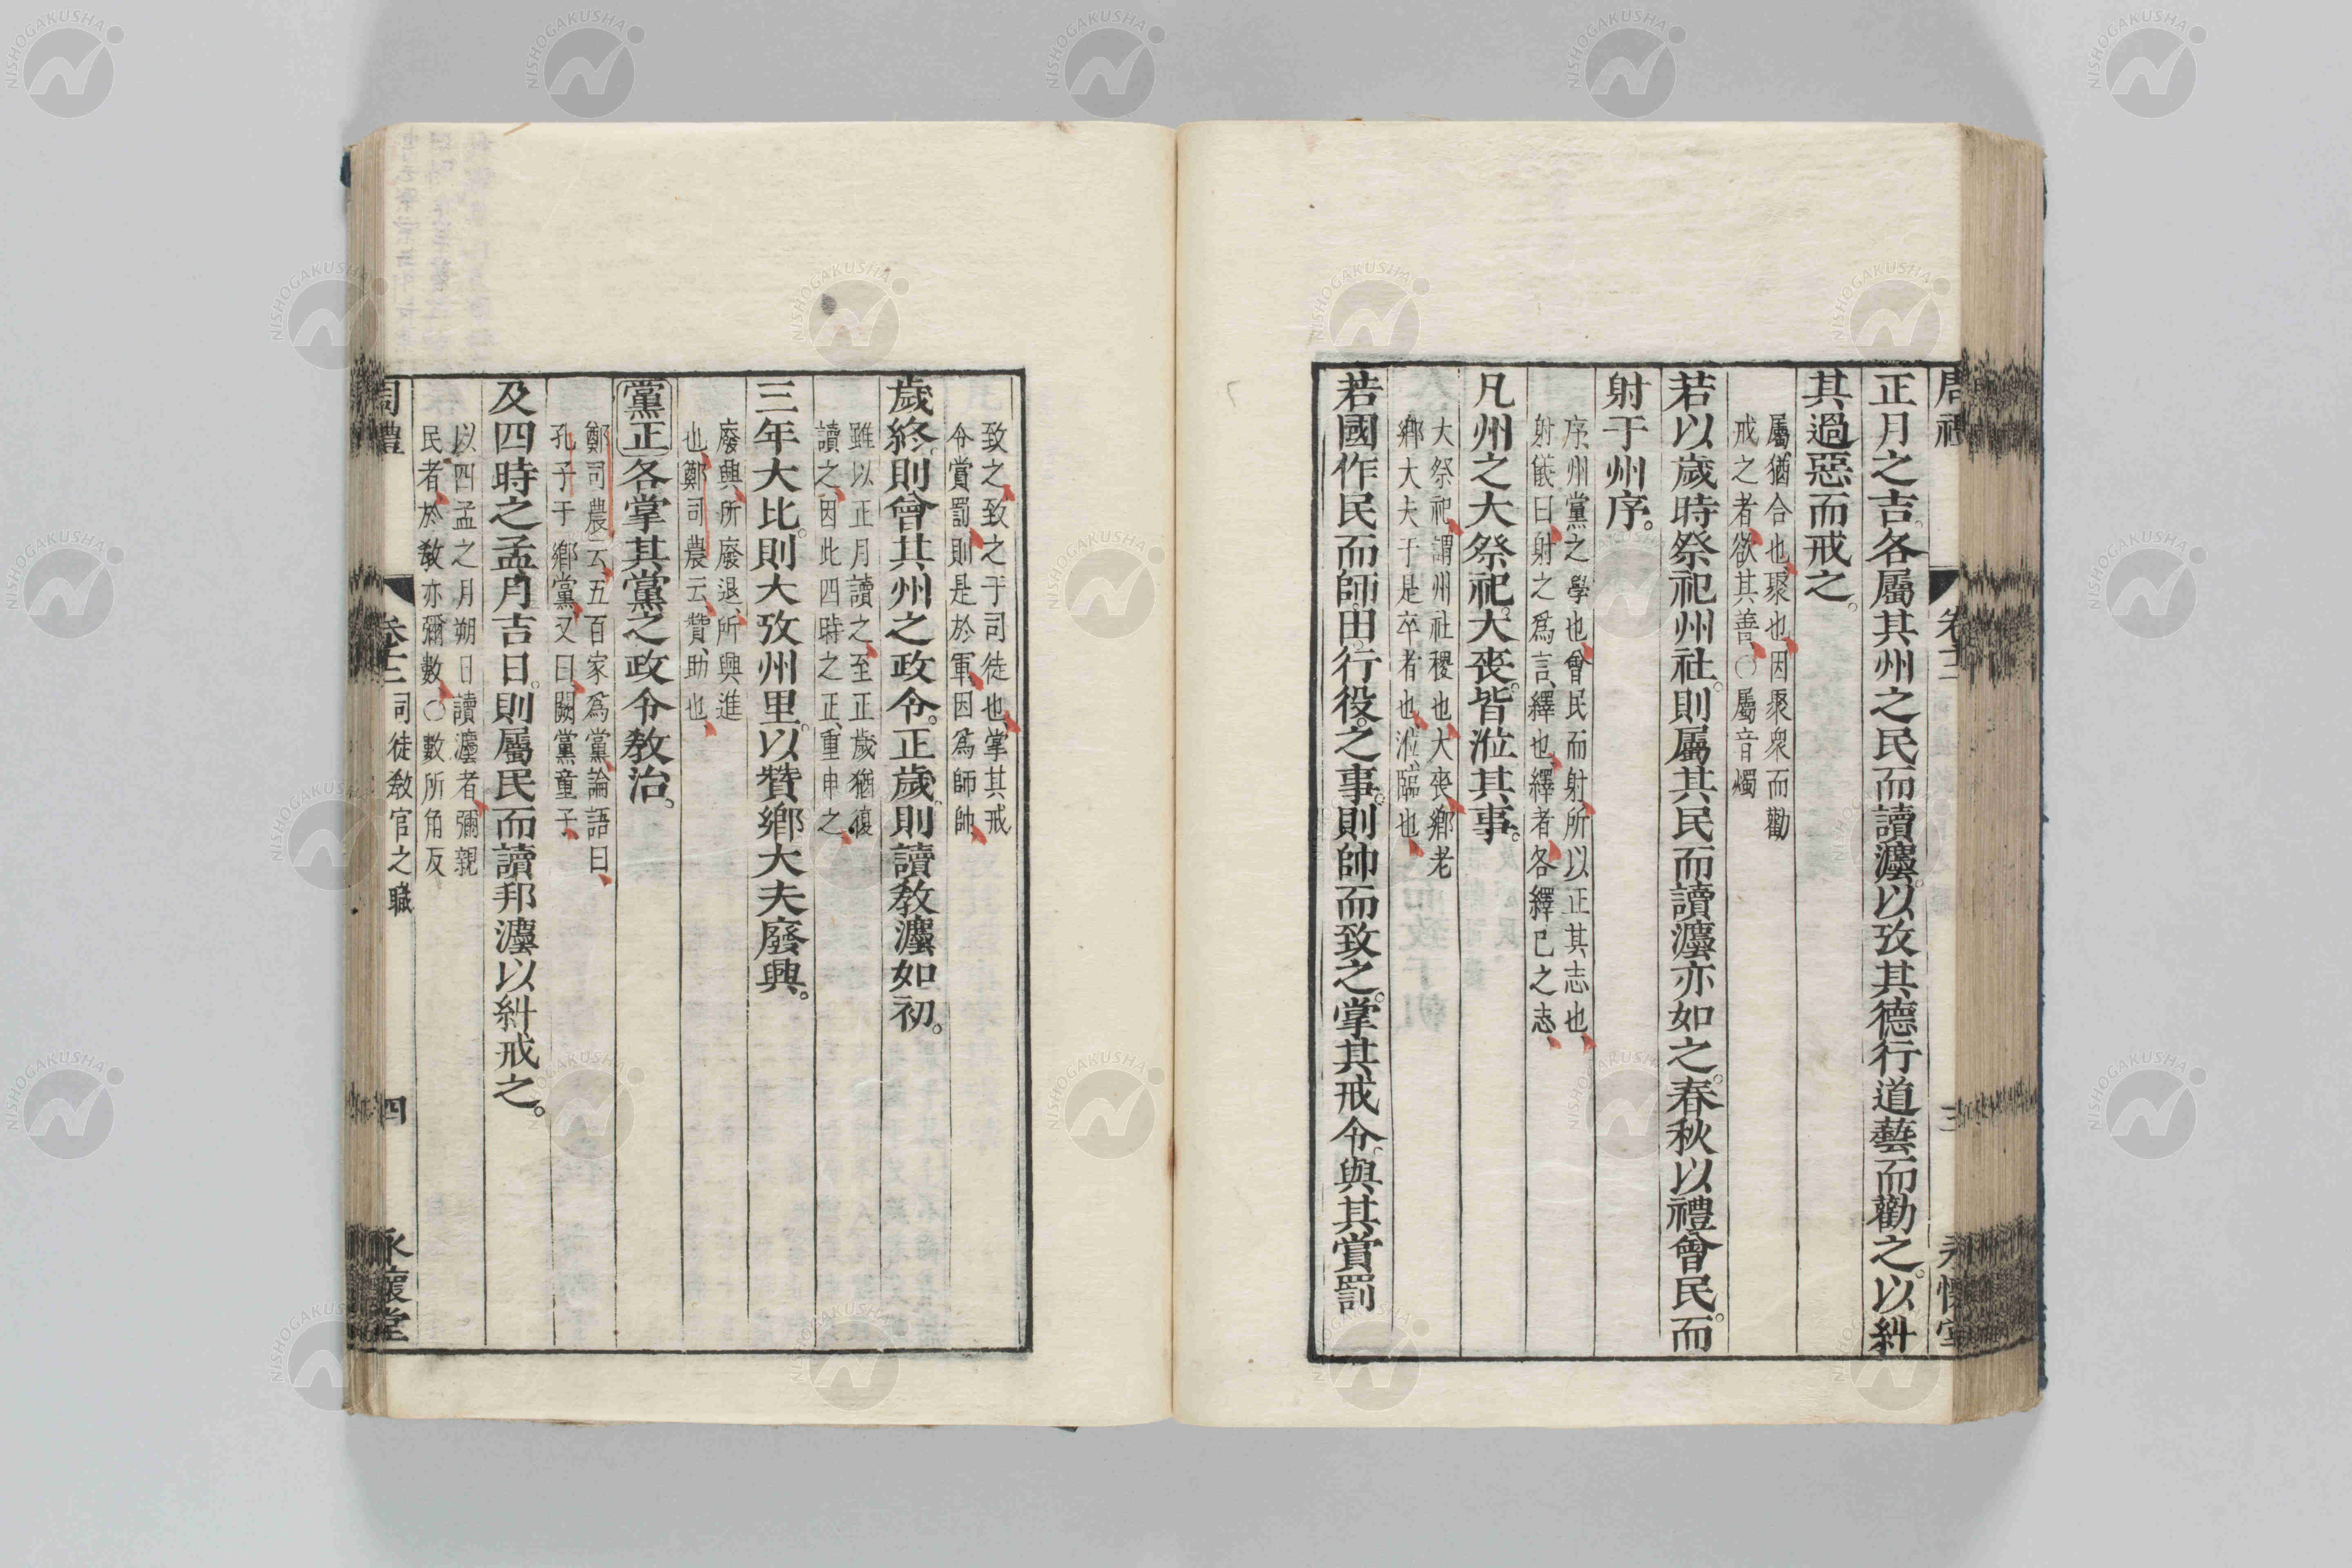 周禮
卷十二
三
永懷堂
正月之吉。各屬其州之民而讀灋。以攷其德行道藝而勸之。以糾
其過惡而戒之。
屬猶合也聚也因聚衆而勸
戒之者欲其善〇屬音燭
若以歲時祭祀州社。則屬其民而讀灋亦如之。春秋以禮會民。而
射于州序。
序州黨之學也會民而射所以正其志也
射儀曰射之爲言繹也繹者各繹已之志
凡州之大祭祀。大喪。皆涖其事。
大祭祀謂州社稷也大喪鄉老
鄉大夫于是卒者也涖臨也
若國作民而師。田。行役。之事。則帥而致之。掌其戒令。與其賞罰
致之致之于司徒也掌其戒
令賞罰則是於軍因爲師帥
歲終。則會其州之政令。正歲。則讀敎灋如初。
雖以正月讀之至正歲猶復
讀之因此四時之正重申之
三年大比。則大攷州里。以贊鄉大夫廢興。
廢興所廢退所興進
也鄭司農云贊助也
黨正各掌其黨之政令敎治。
鄭司農云五百家爲黨論語曰
孔子于鄉黨又曰闕黨童子
及四時之孟月吉日。則屬民而讀邦灋以糾戒之。
以四孟之月朔日讀灋者彌親
民者於敎亦彌數〇數所角反
周禮
卷十二
司徒敎官之職
四
永懷堂
NISHOGAKUSHA